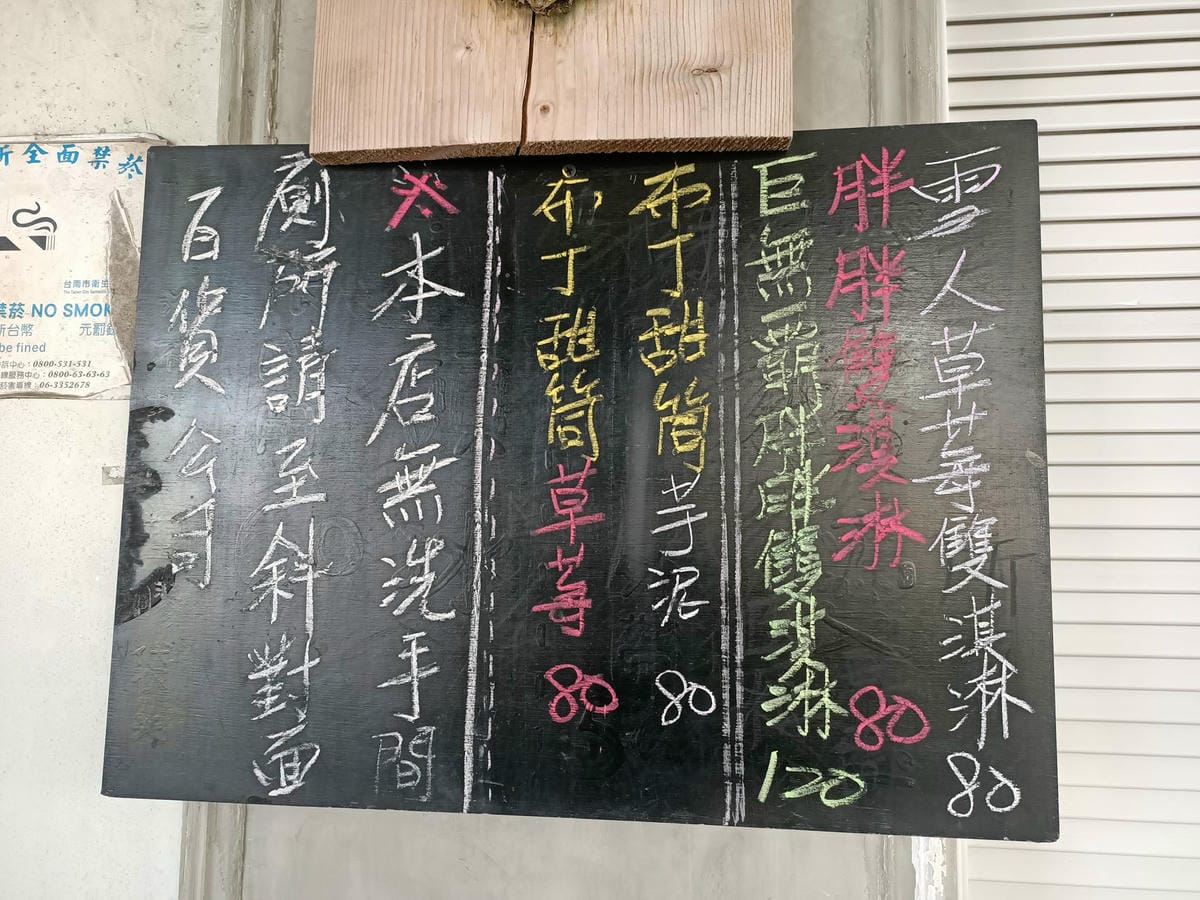 雪人草莓雙淇淋 80
胖胖雙淇淋 80
巨無霸胖胖雙淇淋 120
布丁甜筒芋泥 80
布丁甜筒草莓 80
本店無洗手間
廁所請至斜對面
百貨公司
所全面禁菸
台南市衛生
禁菸 NO SMOK
新台幣 元罰鍰
be fined
中心：0800-531-531
服務中心：0800-63-63-63
專線：06-3352678